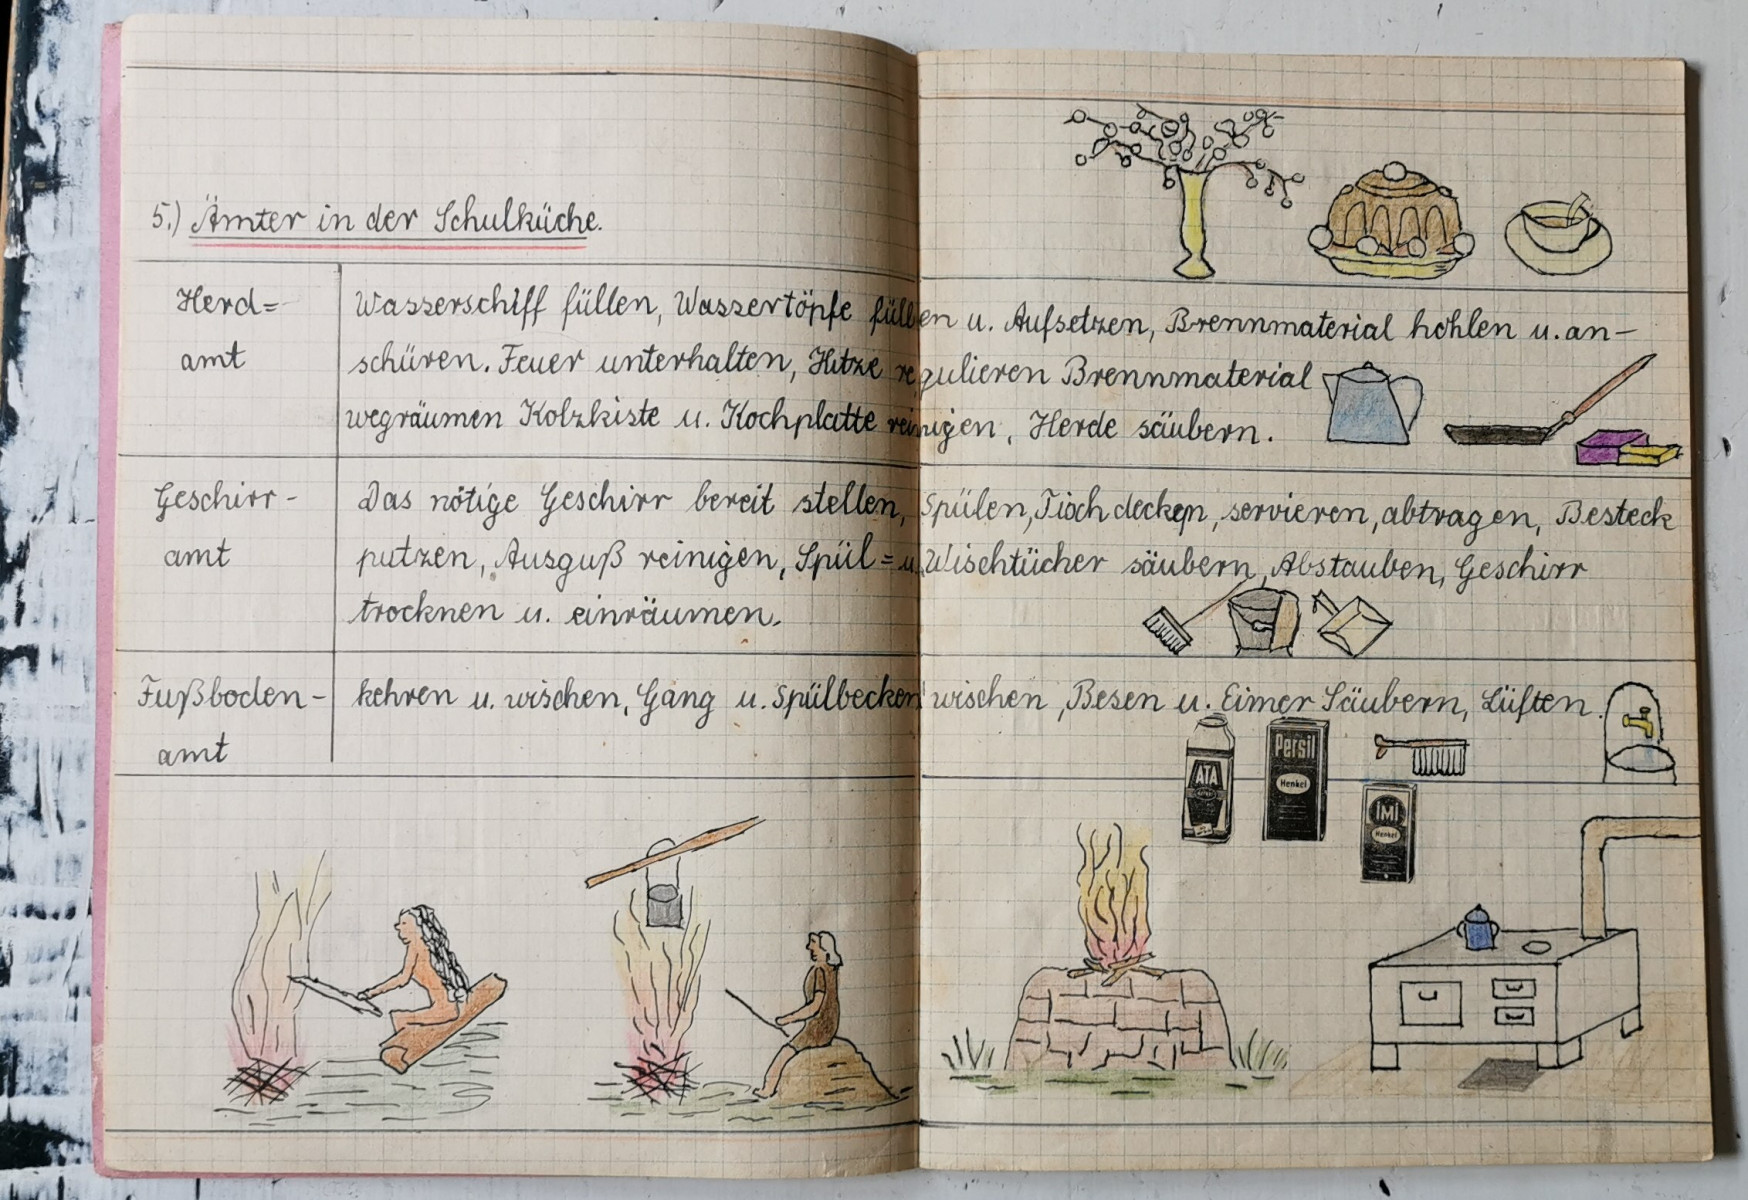 5.) Ämter in der Schulküche.
Herd= Wasserschiff füllen, Wassertöpfe füllen u. Aufsetzen, Brennmaterial hohlen u. an-
amt schüren. Feuer unterhalten, Hitze regulieren Brennmaterial
wegräumen Kolzkiste u. Kochplatte reinigen, Herde säubern.
Geschirr- Das nötige Geschirr bereit stellen, Spülen, Tisch decken, servieren, abtragen, Besteck
amt putzen, Ausguß reinigen, Spül= u. Wischtücher säubern, Abstauben, Geschirr
trocknen u. einräumen.
Fußboden- kehren u. wischen, Gang u. Spülbecken wischen, Besen u. Eimer Säubern, Lüften.
amt
ATA
Persil
Henkel
IMI
Henkel